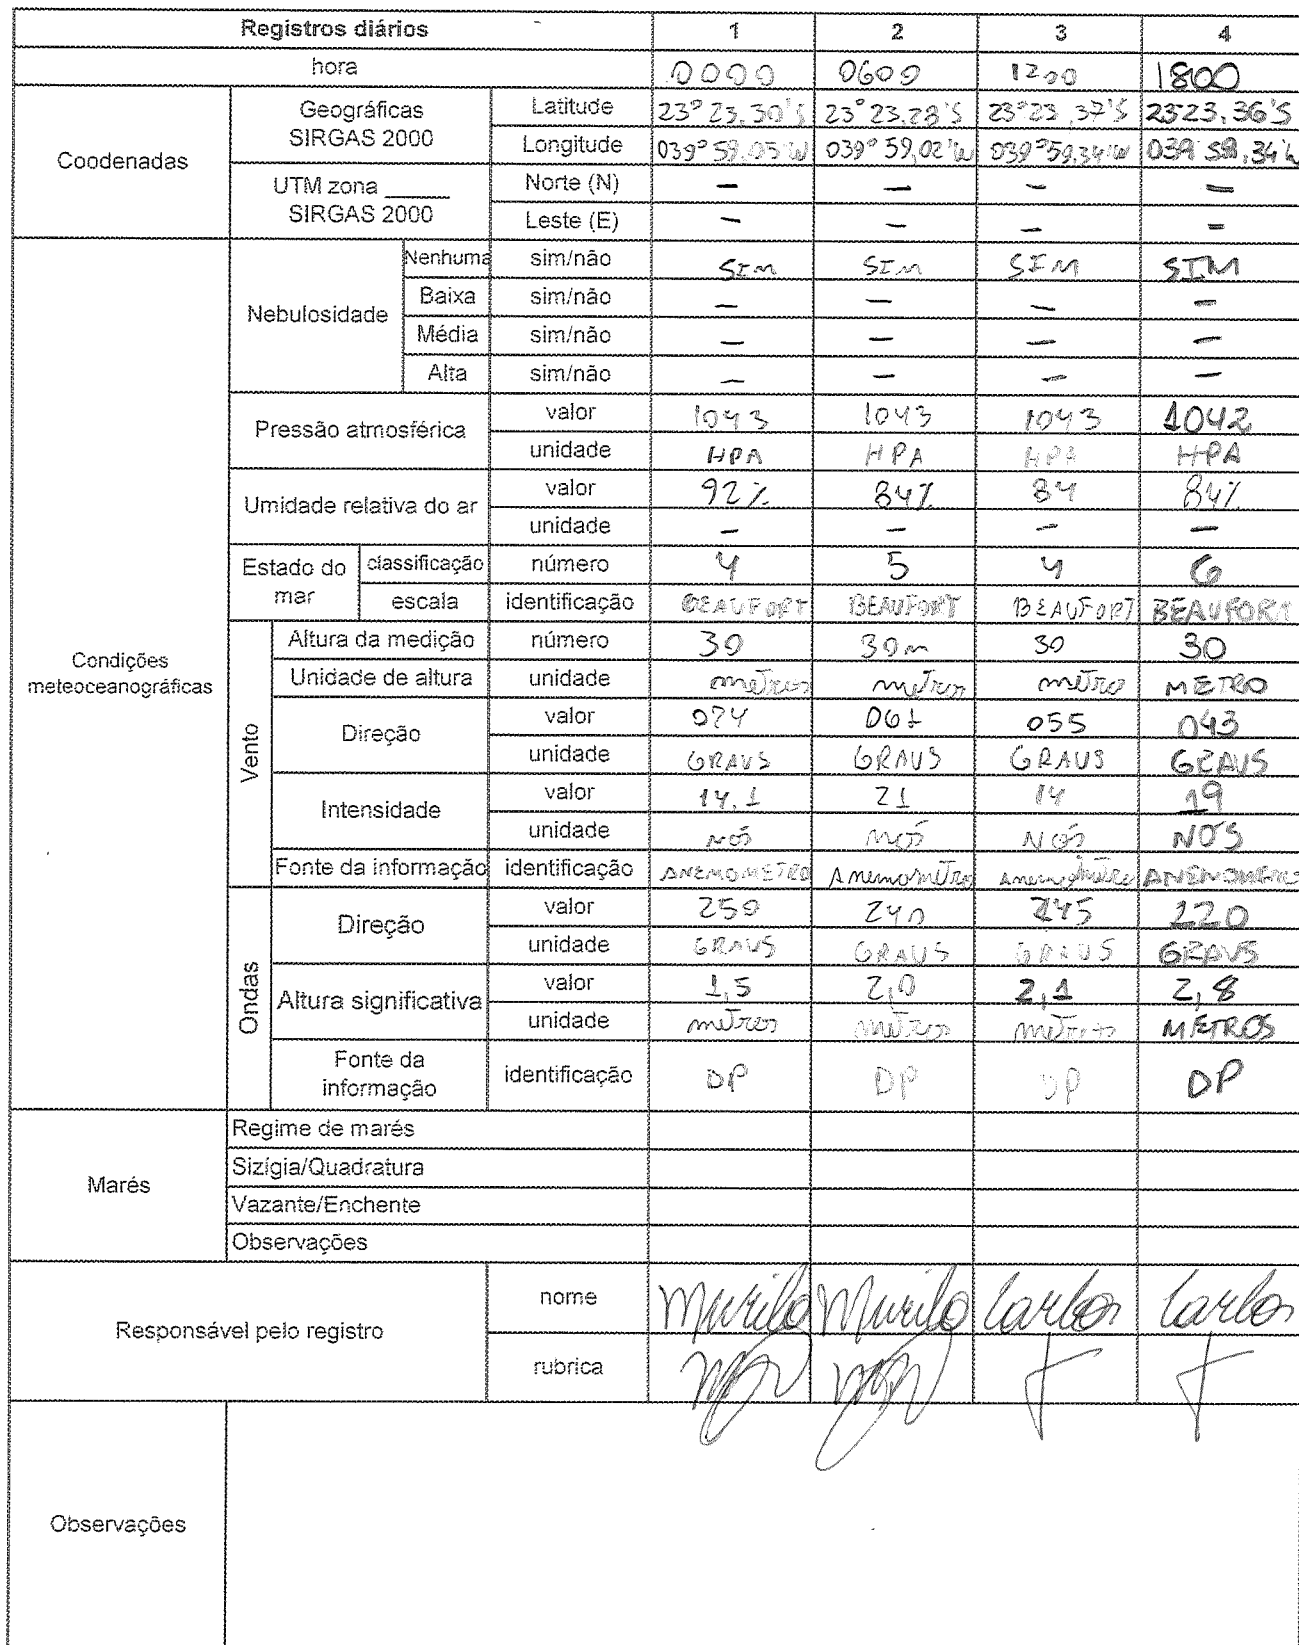 Registros diários 1 2 3 4
hora 0000 0600 1200 1800
Coodenadas Geográficas SIRGAS 2000 Latitude 23° 23.30'S 23° 23.28'S 23°23.37'S 2323.36'S
Longitude 039° 59.05'W 039° 59,02'W 039°59.34'W 039 59.34'W
UTM zona ______ SIRGAS 2000 Norte (N) – – – –
Leste (E) – – – –
Condições meteoceanográficas Nebulosidade Nenhuma sim/não SIM SIM SIM SIM
Baixa sim/não – – – –
Média sim/não – – – –
Alta sim/não – – – –
Pressão atmosférica valor 1043 1043 1043 1042
unidade HPA HPA HPA HPA
Umidade relativa do ar valor 92% 84% 84 84%
unidade – – – –
Estado do mar classificação número 4 5 4 6
escala identificação BEAUFORT BEAUFORT BEAUFORT BEAUFORT
Vento Altura da medição número 30 30m 30 30
Unidade de altura unidade metros metros metro METRO
Direção valor 074 061 055 043
unidade GRAUS GRAUS GRAUS GRAUS
Intensidade valor 14.1 21 14 19
unidade NÓS NÓS NÓS NÓS
Fonte da informação identificação ANEMOMETRO Anemometro Anemometro ANENOMETRO
Ondas Direção valor 250 240 245 220
unidade GRAUS GRAUS GRAUS GRAUS
Altura significativa valor 1,5 2,0 2,1 2,8
unidade metros metros metros METROS
Fonte da informação identificação DP DP DP DP
Marés Regime de marés
Sizígia/Quadratura
Vazante/Enchente
Observações
Responsável pelo registro nome Murilo Murilo Carlos Carlos
rubrica
Observações